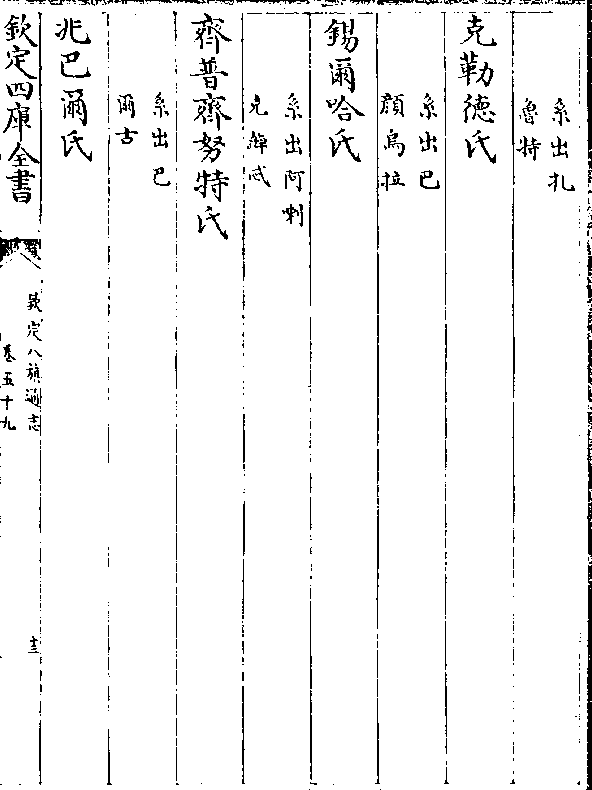 系出扎
魯特
克勒德氏
系出巴
顔烏拉
錫爾哈氏
系出阿喇
齊普齊努特氏
系出巴
爾古
兆巴爾氏
欽定四庫全書
欽定八旗通志
卷五十九
十三